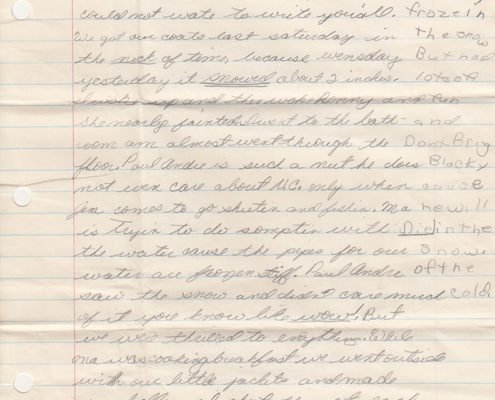 could not wate to write you all.
We got our coats last saturday in
the nick of time, because wensday
yesterday it snowed about 2 inches.
up and then woke and
She nearly fainted I went to the bath
room am almost went through the
floor. Paul Andre is such a nut he does
not even care about N.C. only when
Jim comes to go shutin and fishin. Ma
is tryin to do somptin with
the water cause the pipes for our
water are frozen stiff. Paul Andre
saw the snow and didn't care much
of it you know like wow! But
we were thriled to While
ma was cooking breakfast we went outside
with our little jackets and made
froze in
the snow
But had
lots of
fun
and
Dont Bring
Blacky
cause
he will
Die in the
snow.
of the
cold